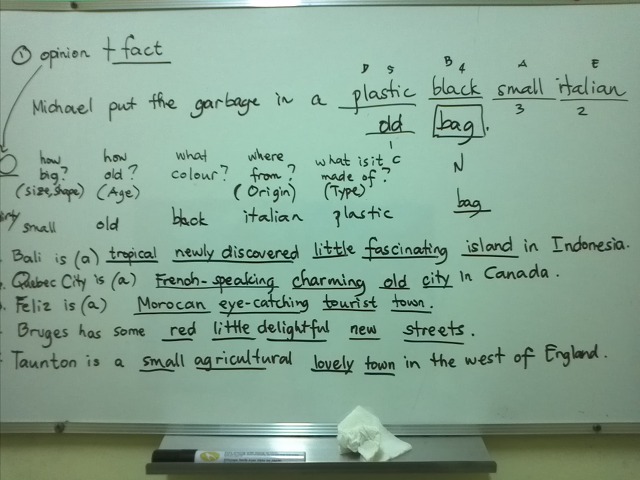 ① opinion + fact
D 5 B 4 A E
Michael put the garbage in a plastic black small italian
3 2
old bag.
1
how how what where what is it C N
big? old? colour? from? made of?
(size, shape) (Age) (Origin) (Type)
small old black italian plastic bag
Bali is (a) tropical newly discovered little fascinating island in Indonesia.
Quebec City is (a) French-speaking charming old city in Canada.
Feliz is (a) Morocan eye-catching tourist town.
Bruges has some red little delightful new streets.
Taunton is a small agricultural lovely town in the west of England.